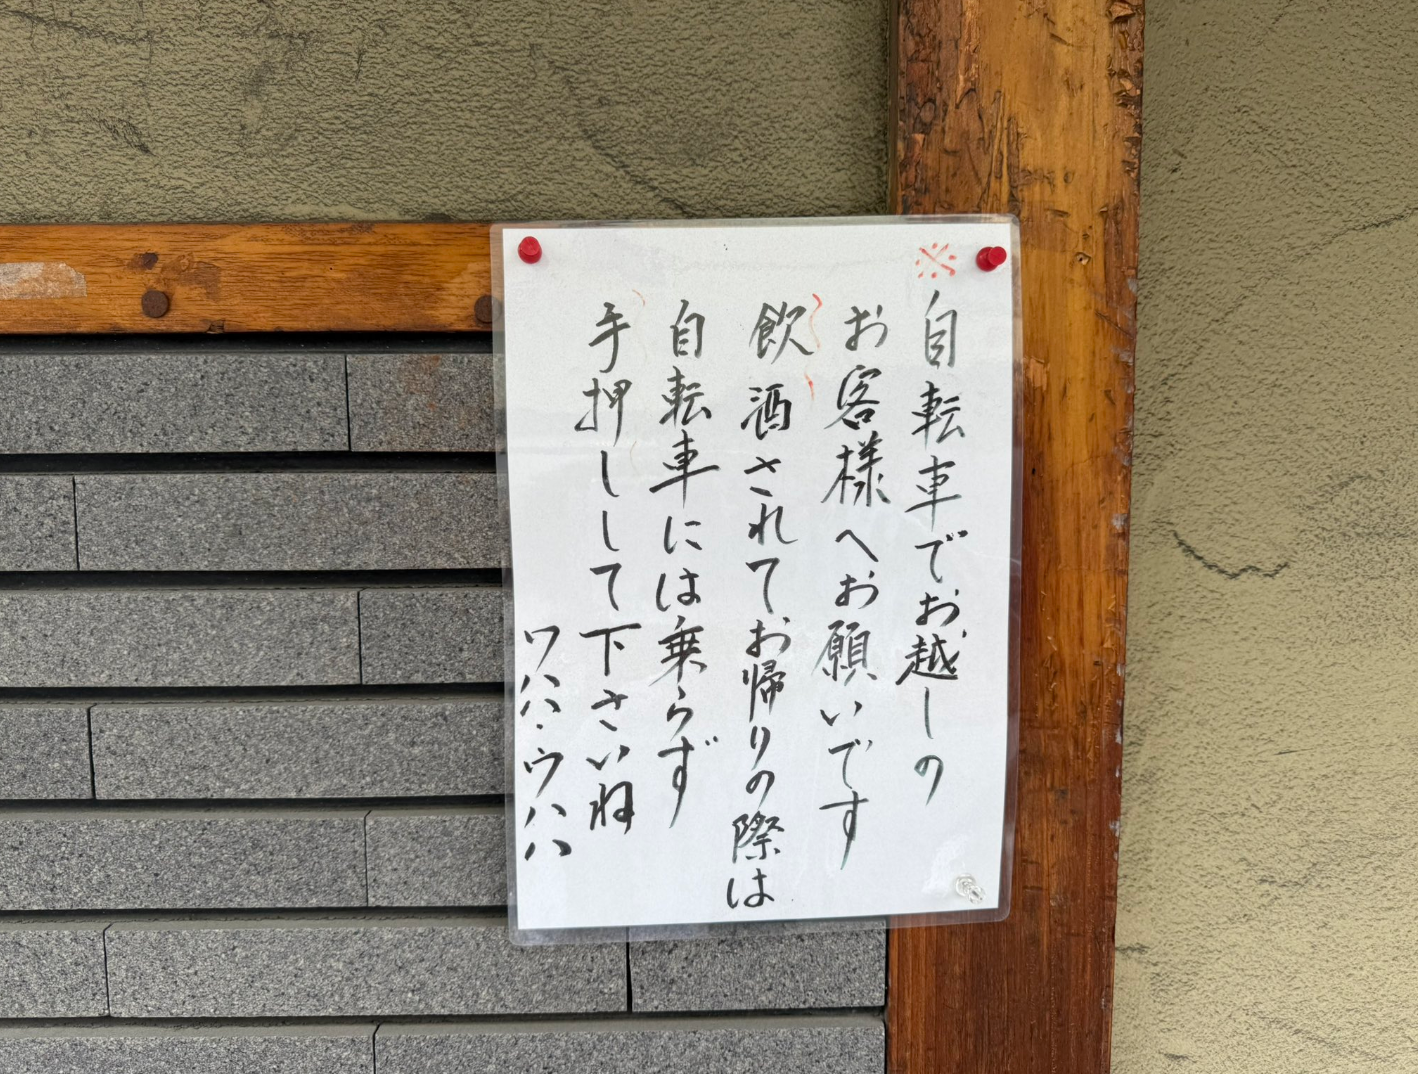 ※自転車でお越しの
お客様へお願いです
飲酒されてお帰りの際は
自転車には乗らず
手押しして下さいね
ワハハ・ウハハ